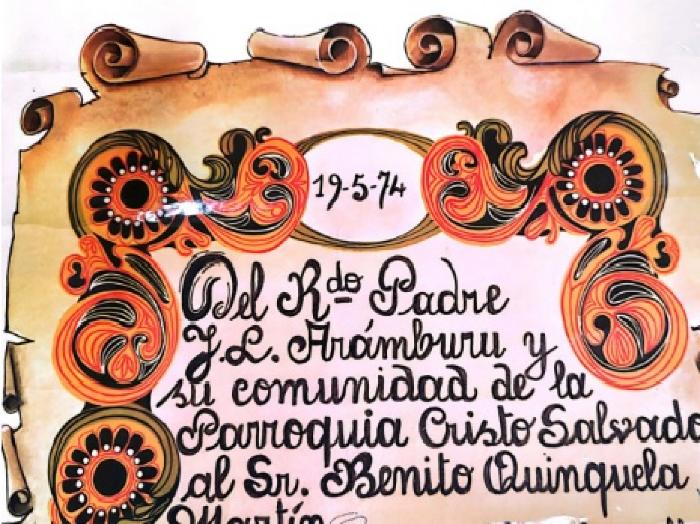 19-5-74
Del Rdo Padre
J.L. Arámburu y
su comunidad de la
Parroquia Cristo Salvado
al Sr. Benito Quinquela
Martín